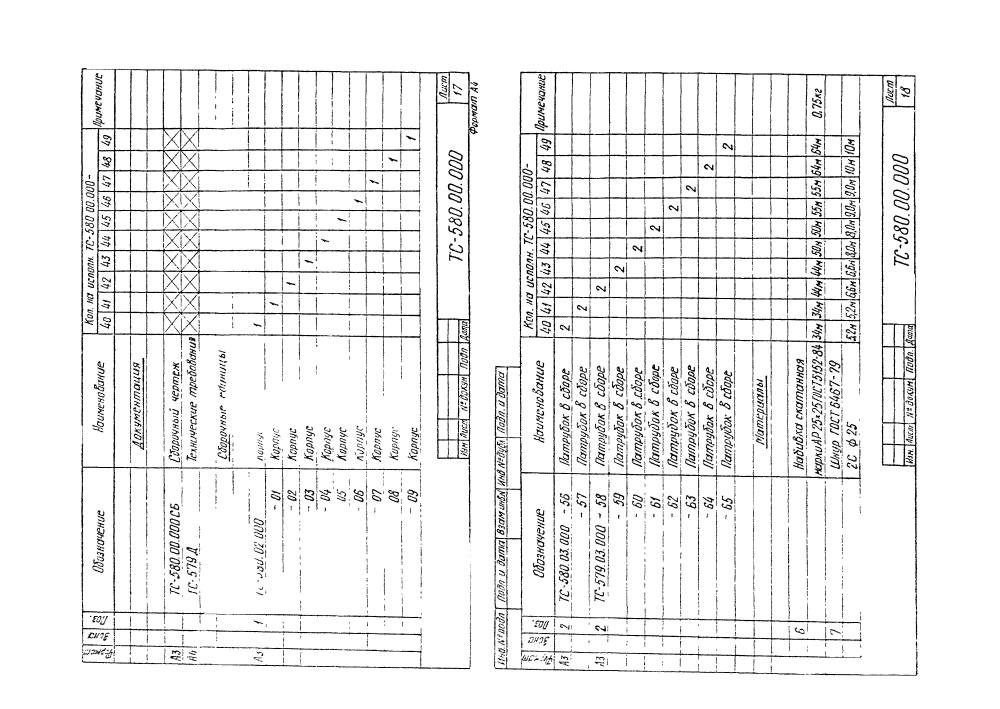 Формат Зона Поз. Обозначение Наименование Кол. на исполн. ТС-580.00.000- Примечание
40 41 42 43 44 45 46 47 48 49
Документация
А3 ТС-580.00.000 СБ Сборочный чертеж
А4 ТС-579 Д Технические требования
Сборочные единицы
А3 1 ТС-580.02.000 Корпус 1
- 01 Корпус 1
- 02 Корпус 1
- 03 Корпус 1
- 04 Корпус 1
05 Корпус 1
- 06 Корпус 1
- 07 Корпус 1
08 Корпус 1
- 09 Корпус 1
Изм Лист № докум Подп. Дата
ТС-580.00.000
Лист
17
Формат А4
Инв. № подл Подп и дата Взам инв № Инв № дубл Подп. и дата
Формат Зона Поз. Обозначение Наименование Кол. на исполн. ТС-580.00.000- Примечание
40 41 42 43 44 45 46 47 48 49
А3 2 ТС-580.03.000 - 56 Патрубок в сборе 2
- 57 Патрубок в сборе 2
А3 2 ТС-579.03.000 - 58 Патрубок в сборе 2
- 59 Патрубок в сборе 2
- 60 Патрубок в сборе 2
- 61 Патрубок в сборе 2
- 62 Патрубок в сборе 2
- 63 Патрубок в сборе 2
- 64 Патрубок в сборе 2
- 65 Патрубок в сборе 2
Материалы
6 Набивка скатанная
марки АР 25×25 ГОСТ 5152-84 34м 34м 44м 44м 50м 50м 55м 55м 64м 64м 0.75кг
7 Шнур ГОСТ 6467-79
2С ф 25 5.2м 5.2м 6.6м 6.6м 8.0м 8.0м 9.0м 9.0м 10м 10м
Изм. Лист № докум Подп. Дата
ТС-580.00.000
Лист
18